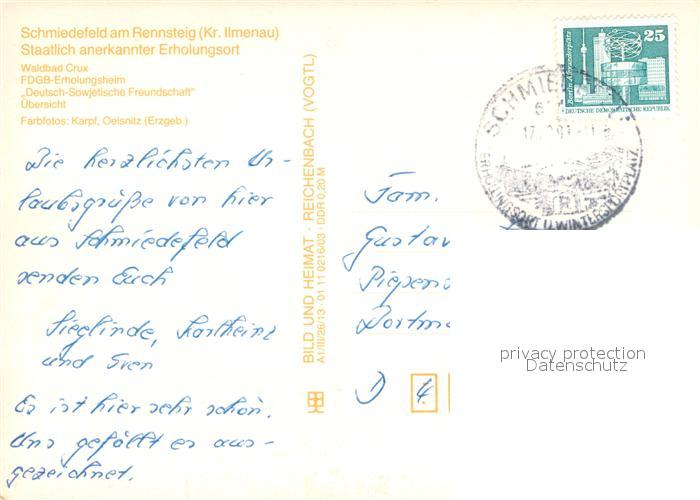 Schmiedefeld am Rennsteig (Kr. Ilmenau)
Staatlich anerkannter Erholungsort
Waldbad Crux
FDGB-Erholungsheim
„Deutsch-Sowjetische Freundschaft"
Übersicht
Farbfotos: Karpf, Oelsnitz (Erzgeb.)
Die herzlichsten Ur-
laubsgrüße von hier
aus Schmiedefeld
senden Euch
Sieglinde, Karlheinz
und Sven
Es ist hier sehr schön.
Uns gefällt es aus-
gezeichnet.
BILD UND HEIMAT · REICHENBACH (VOGTL)
A1/III/26/13 · 01 11 0216/03 · DDR 0,20 M
25
Berlin, Alexanderplatz
DEUTSCHE DEMOKRATISCHE REPUBLIK
SCHMIE
ERHOLUNGSORT U. WINTERSPORTPLATZ
Fam.
Gustav
Piepen
Dortm
D 4
privacy protection
Datenschutz